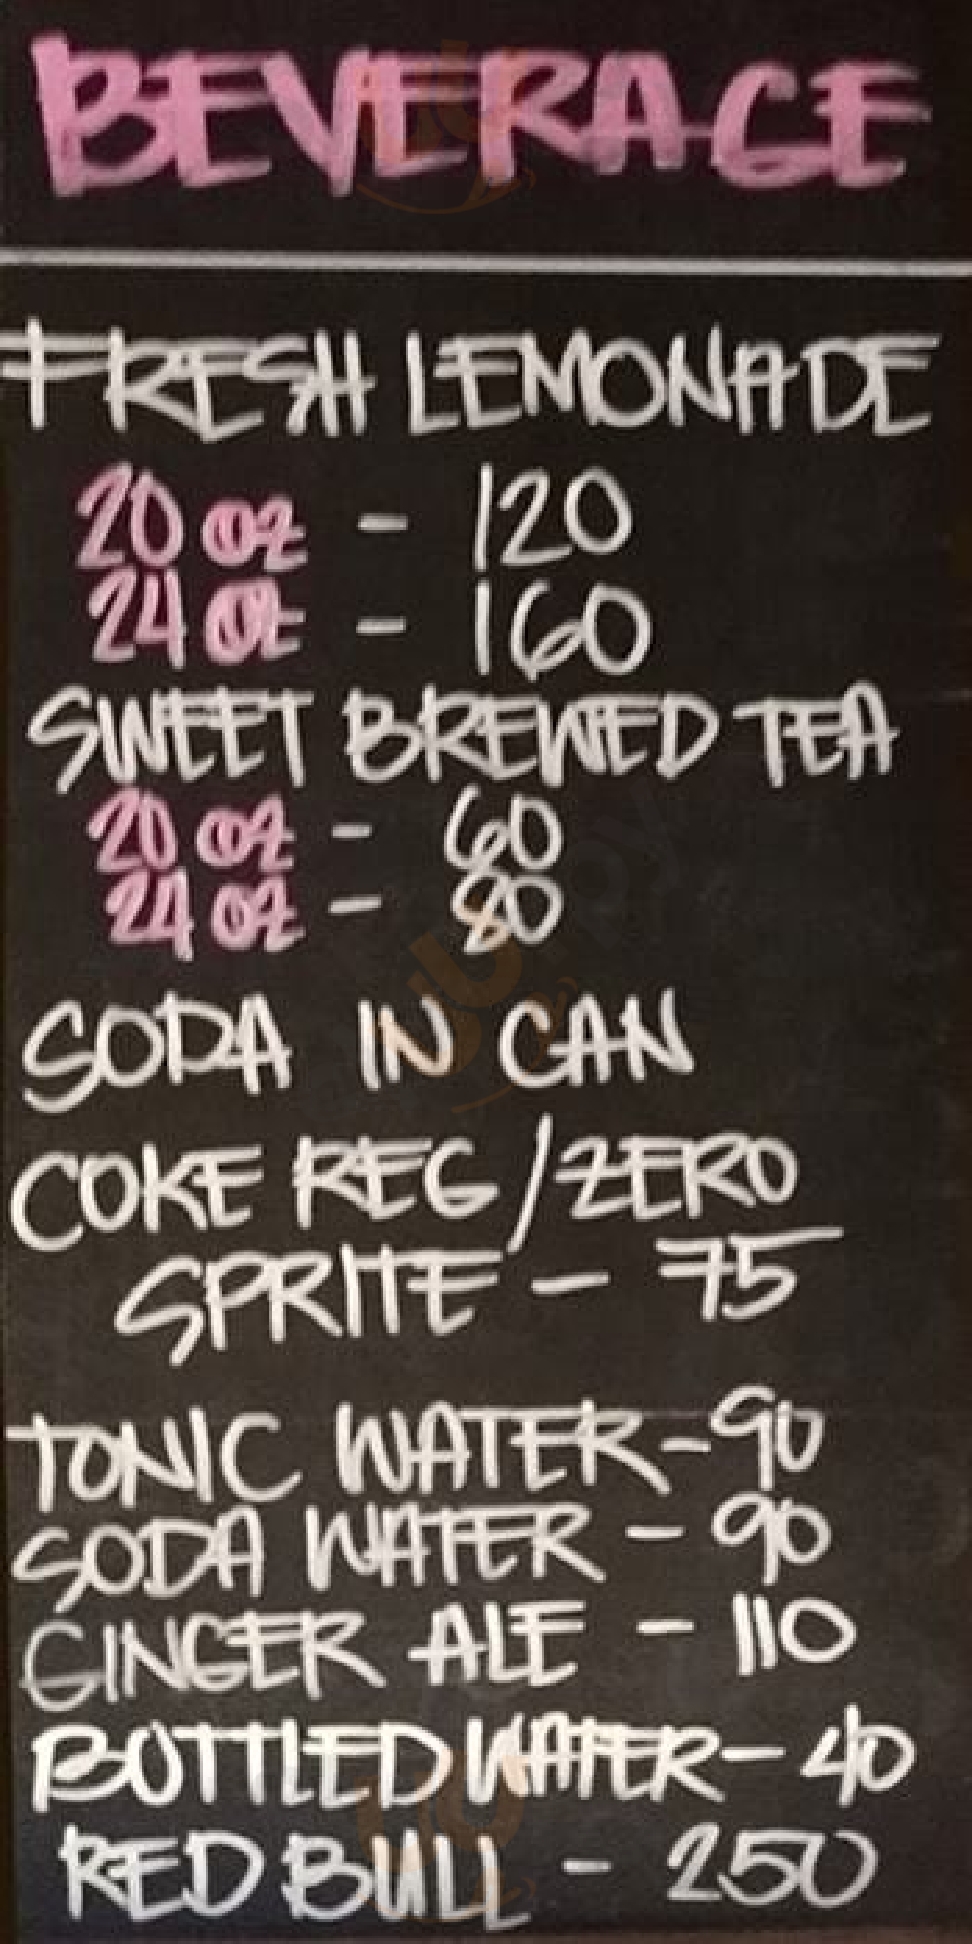 BEVERAGE
FRESH LEMONADE
20 oz - 120
24 oz - 160
SWEET BREWED TEA
20 oz - 60
24 oz - 80
SODA IN CAN
COKE REG/ZERO
SPRITE - 75
TONIC WATER - 90
SODA WATER - 90
GINGER ALE - 110
BOTTLED WATER - 40
RED BULL - 250